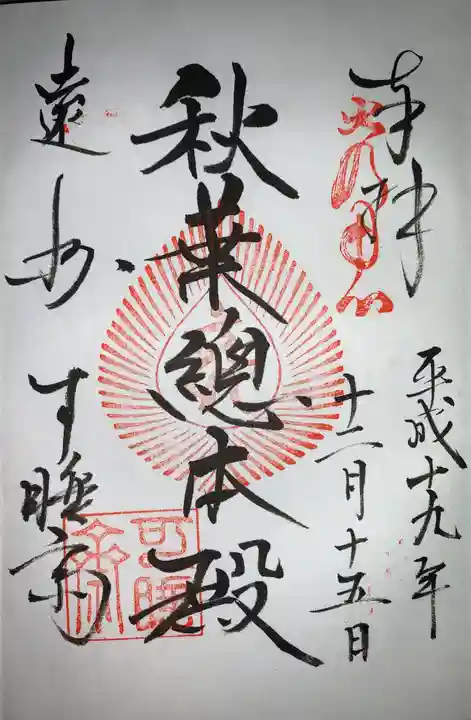 奉拝
平成十九年
十二月十五日
秋葉總本殿
遠州 可睡斎
可睡齋